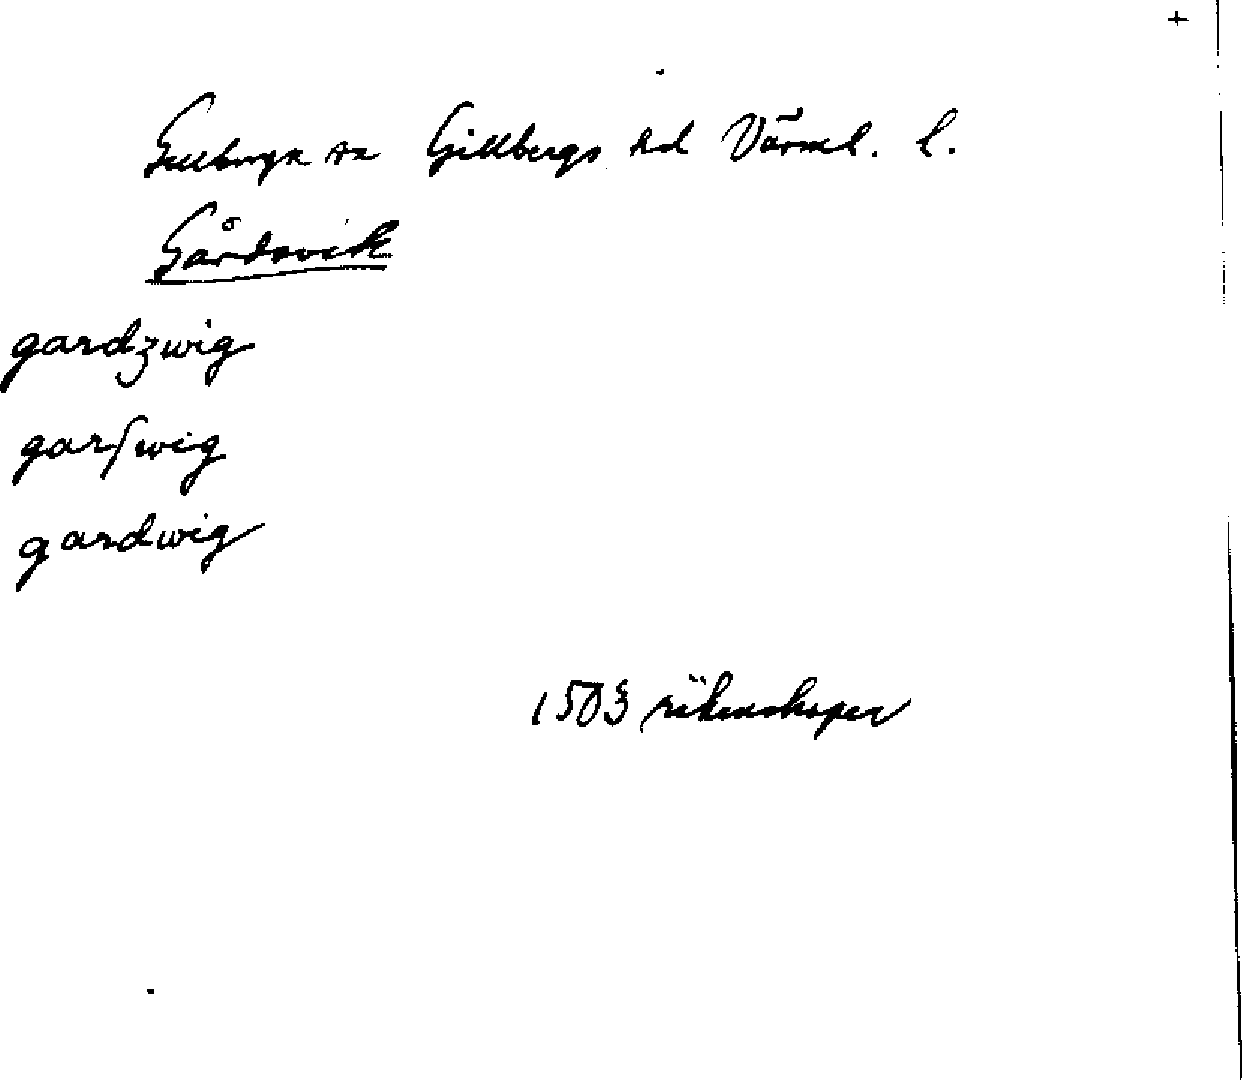 +
Gillberga sn Gillbergs hd Värml. l.
Gårdsvik
gardzwig
garſwig
gardwig
1503 räkenskaper